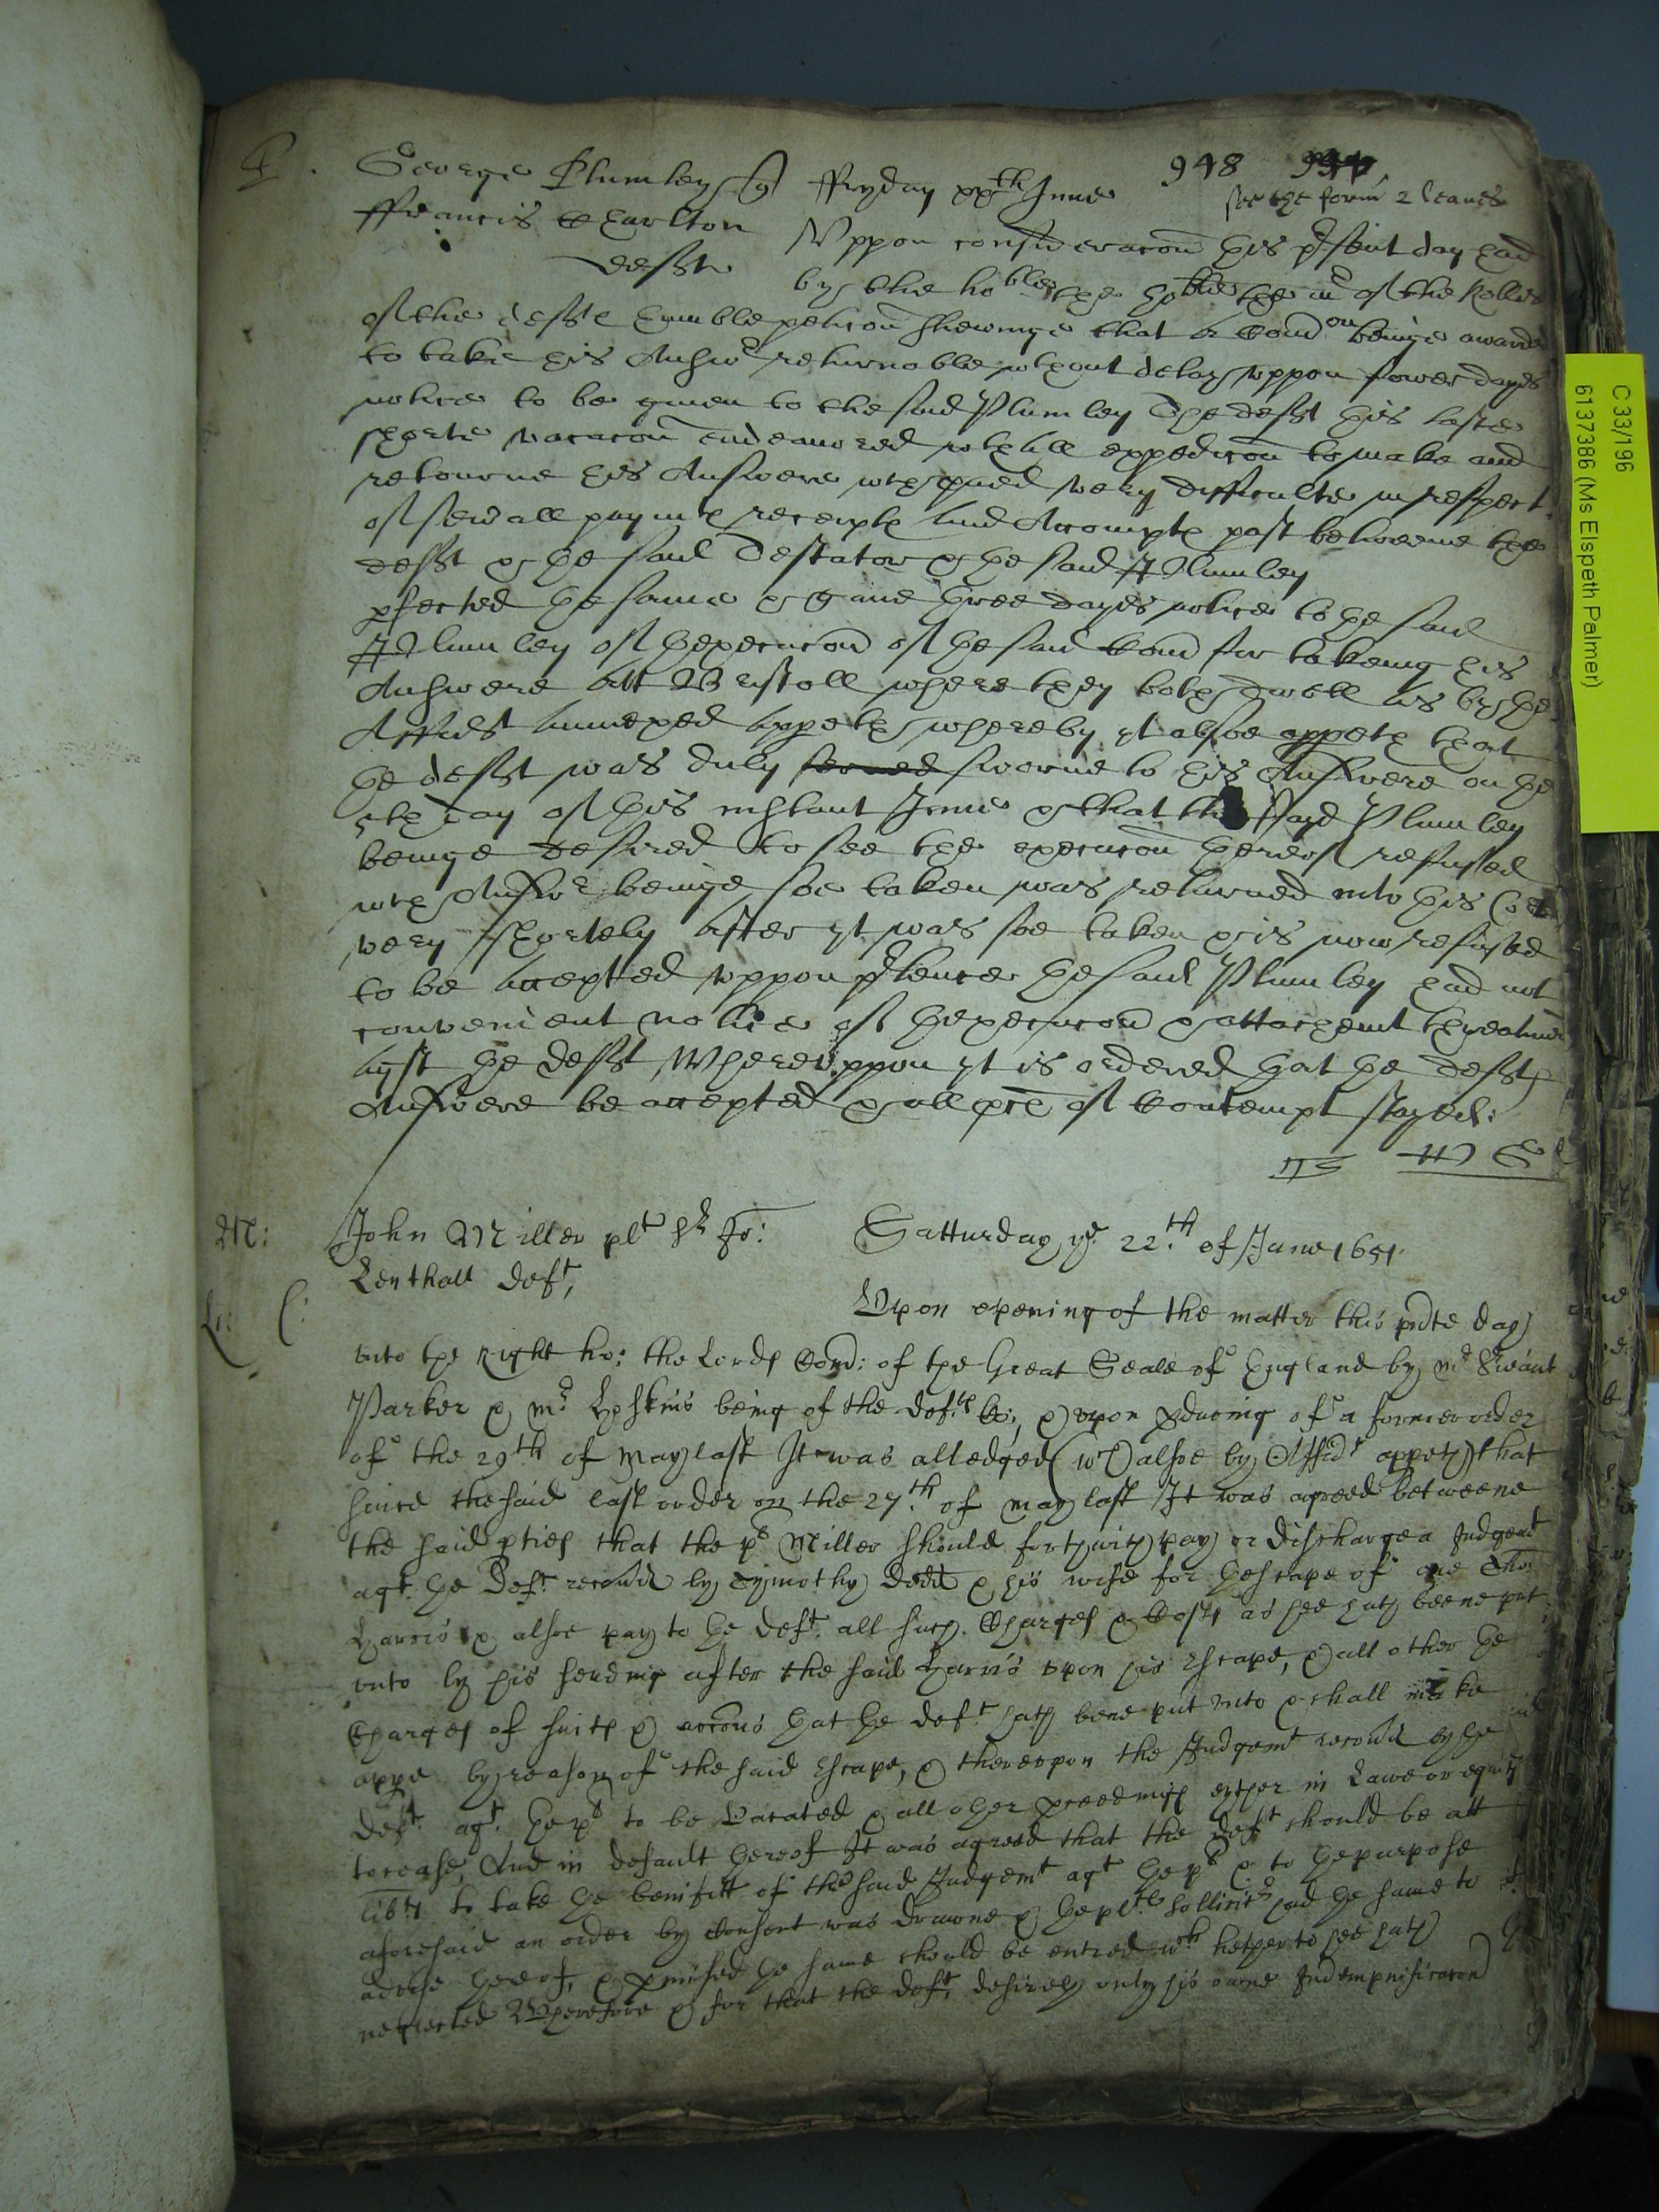 948 994
P. George Plumley q ffryday xxth June see the form 2 leaves
ffrancis Charlton Vppon consideracon this pͬsent day had
defft by the hoble the mͬ of the Rolles
of the defft humble peticon shewinge that a Com̄on beinge awarded
to take his Answͬ returnable wthout delay vppon fower dayes
notice to be given to the said Plumley The defft this laste
shorte vacacon endeavored wth all expedicon to make and
retourne his Answere wch proved very difficulte in respect
of severall paymts receipts and Accompts past betweene the
defft & the said Testator & the said Plumley
pfected the same & gave three dayes notice to the said
Plumley of thexecucon of the said Com̄ for takeing his
Answere att Bristoll where they both dwell as by the
Affidt annexed appeth whereby yt alsoe appeth that
the defft was duly served sworne to his Answere on the
day of this instant June & that the sayd Plumley
beinge desired to see the execucon thereof refused
wch Answͬ beinge soe taken was returned into this Cort
very shortely after yt was soe taken & is now refused
to be accepted vppon pͬtence the said Plumley had not
convenient notice of thexecucon & attachemt threatned
agst the defft Wherevppon yt is ordered that the deffts
Answere be accepted & all pces of Contempt stayed.
M: John Miller plt Sͬ Jo: Satturday yͤ 22.th of June 1651
Lenthall deft,
L: C: Vpon opening of the matter this pnte day
vnto the Right ho: the Lords Com̄: of the Great Seale of England by Mͬ Serieant
Parker & mͬ Hoskins being of the defts Co:, & vpon pduceing of a former order
of the 29th of May last It was alledged (wch alsoe by Affidt appeth) that
since the said last order on the 27.th of may last It was agreed betweene
the said pties that the pͭ Miller should forthwith pay or discharge a Judgemt
agt. the Deft. recoũed by Tymothy Dodd & his wife for thescape of one Tho:
Harris & alsoe pay to the deft. all such Charges & Costs as hee hath beene put
vnto by his sending after the said Harris vpon his Escape, & all other the
Charges of suits & accons that the deft hath bene put vnto & shall make
appe by reason of the said Escape, & therevpon the Judgemt recoũed by the
deft. agt. the pͭ to be Vacated & all other pceedings eyther in Lawe or equity
to cease, And in default thereof It was agreed that the deft should be att
libty to take the benifitt of the said Judgemt agt the pͭ & to the purpose
aforesaid an order by Consent was drawne & the plts sollicitͬ had the same to
advise thereof, & pmised the same should be entred wch hetherto hee hath
neglected Wherefore & for that the deft, desireth only his owne Indempnificacon
C 33/196
6137386 (Ms Elspeth Palmer)